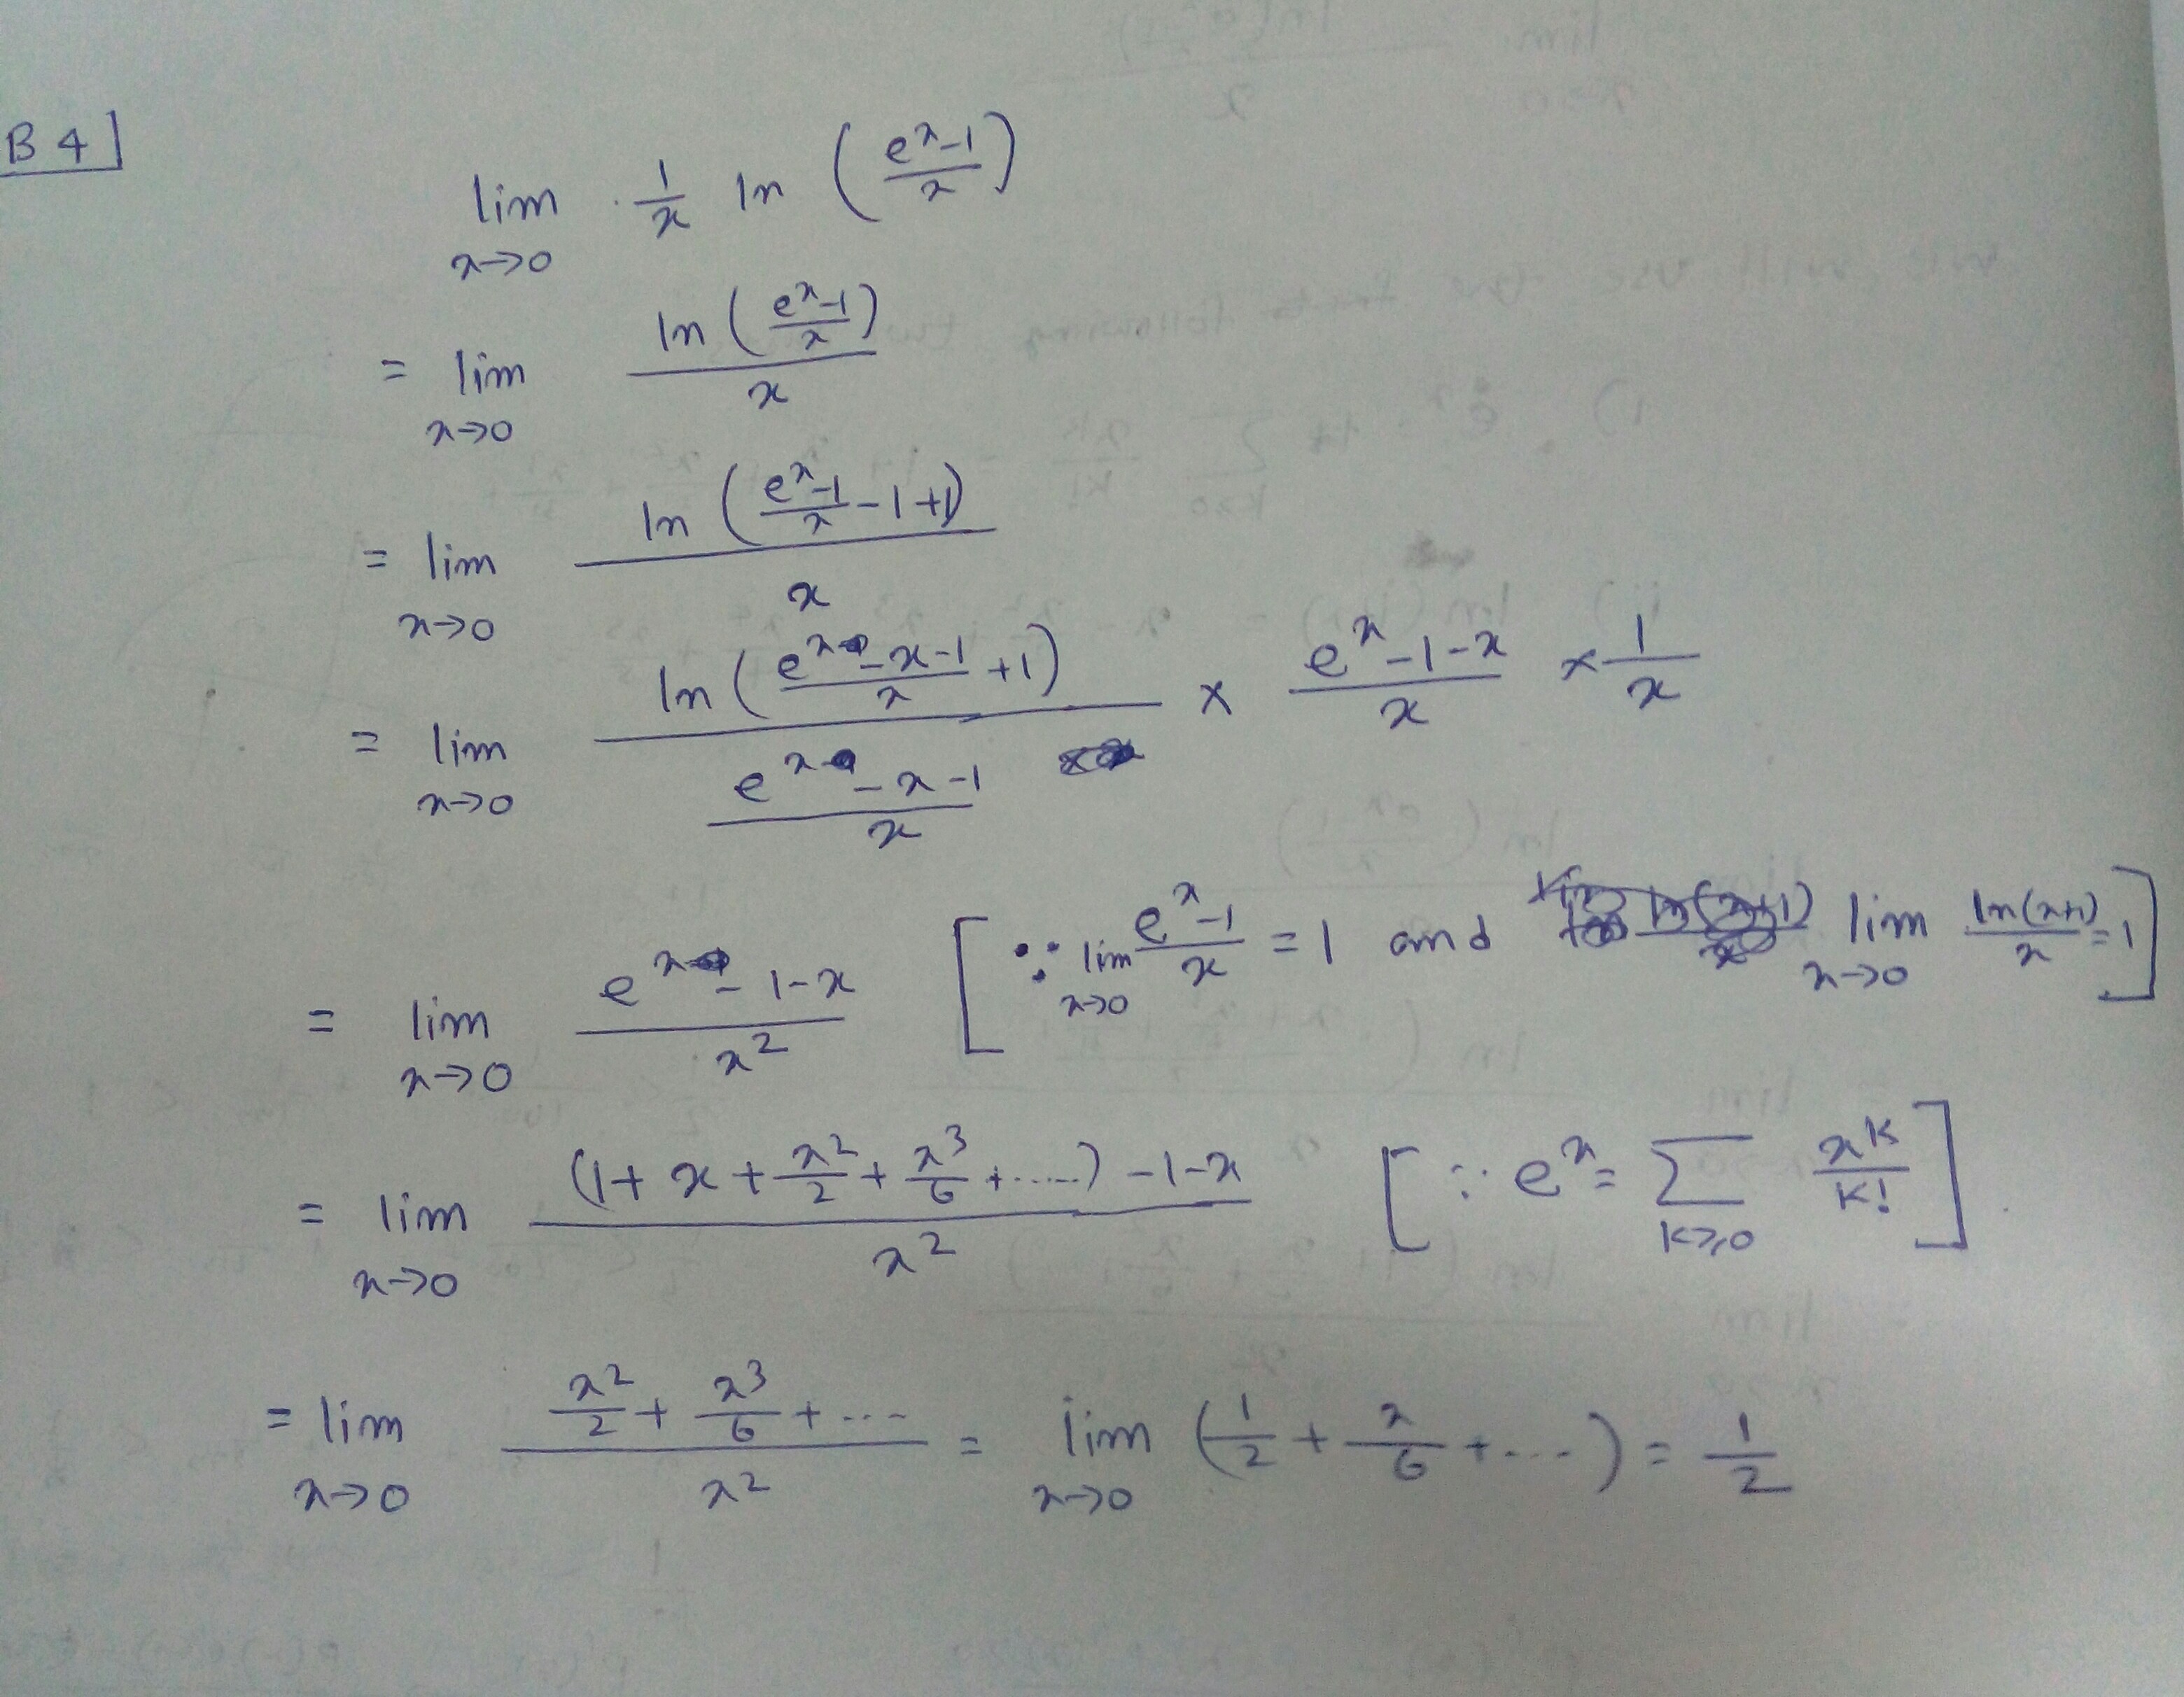 B 4]
lim x→0 1/x ln ( (e^x-1)/x )
= lim x→0 ln ( (e^x-1)/x ) / x
= lim x→0 ln ( (e^x-1)/x - 1 + 1 ) / x
= lim x→0 ln ( (e^x - x - 1)/x + 1 ) / ( (e^x - x - 1)/x ) × (e^x - 1 - x)/x × 1/x
= lim x→0 (e^x - 1 - x)/x^2 [ ∵ lim x→0 (e^x-1)/x = 1 and lim x→0 ln(x+1)/x = 1 ]
= lim x→0 ( (1 + x + x^2/2 + x^3/6 + .....) - 1 - x ) / x^2 [ ∵ e^x = ∑ k≥0 x^k/k! ]
= lim x→0 ( x^2/2 + x^3/6 + ... ) / x^2 = lim x→0 ( 1/2 + x/6 + .... ) = 1/2